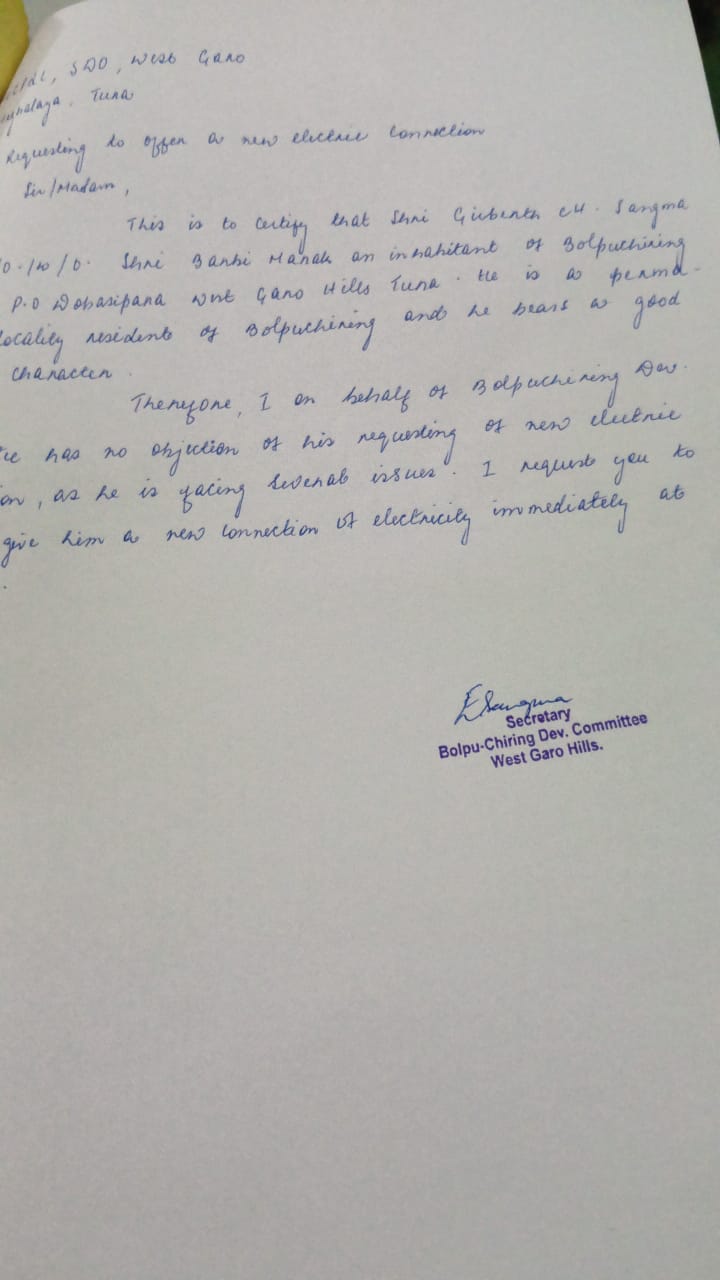 SDO, West Garo
Tura
Requesting to offer a new electric connection
Sir/Madam,
This is to certify that Shri Ch. Sangma
/w/o. Shri Manak an inhabitant of Bolpuchiring
P.O Dobasipara West Garo Hills Tura. He is a perma-
locality residents of Bolpuchiring and he bears a good
character.
Therefore, I on behalf of Bolpuchiring Dev.
has no objection of his requesting of new electric
on, as he is facing several issues. I request you to
give him a new connection of electricity immediately at
.
ESangma
Secretary
Bolpu-Chiring Dev. Committee
West Garo Hills.